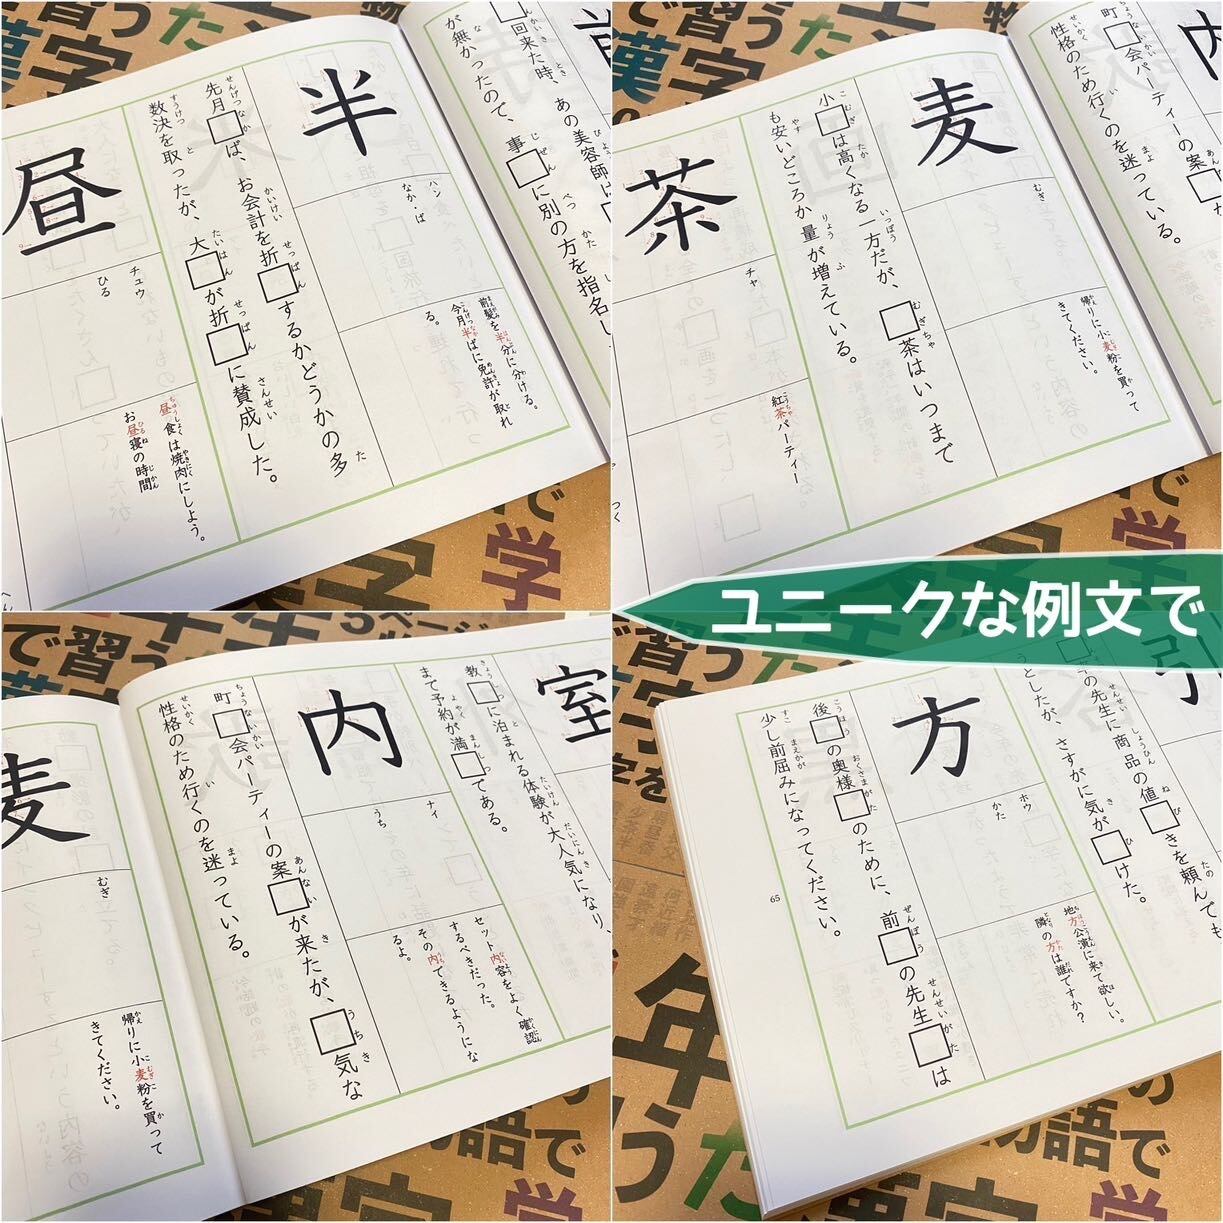 回来た時、あの美容師は
が無かったので、事□に別の方を指名し
半
ハン
なか・ば
前髪を半分に分ける。
今月半ばに免許が取れ
る。
先月□ば、お会計を折□するかどうかの多
数決を取ったが、大□が折□に賛成した。
昼
チュウ
ひる
昼食は焼肉にしよう。
お昼寝の時間
町□会パーティーの案
性格のため行くのを迷っている。
麦
むぎ
帰りに小麦粉を買って
きてください。
小□は高くなる一方だが、□茶はいつまで
も安いどころか量が増えている。
茶
チャ
紅茶パーティー
ユニークな例文で
室
教□に泊まれる体験が大人気になり、
まで予約が満□である。
内
ナイ
うち
セット内容をよく確認
するべきだった。
その内できるようにな
るよ。
町□会パーティーの案□が来たが、□気な
性格のため行くのを迷っている。
麦
むぎ
帰りに小麦粉を買って
きてください。
の先生に商品の値□きを頼んでも
うとしたが、さすがに気が□けた。
方
ホウ
かた
地方公演に来て欲しい。
隣の方は誰ですか?
後□の奥様□のために、前□の先生□は
少し前屈みになってください。
65